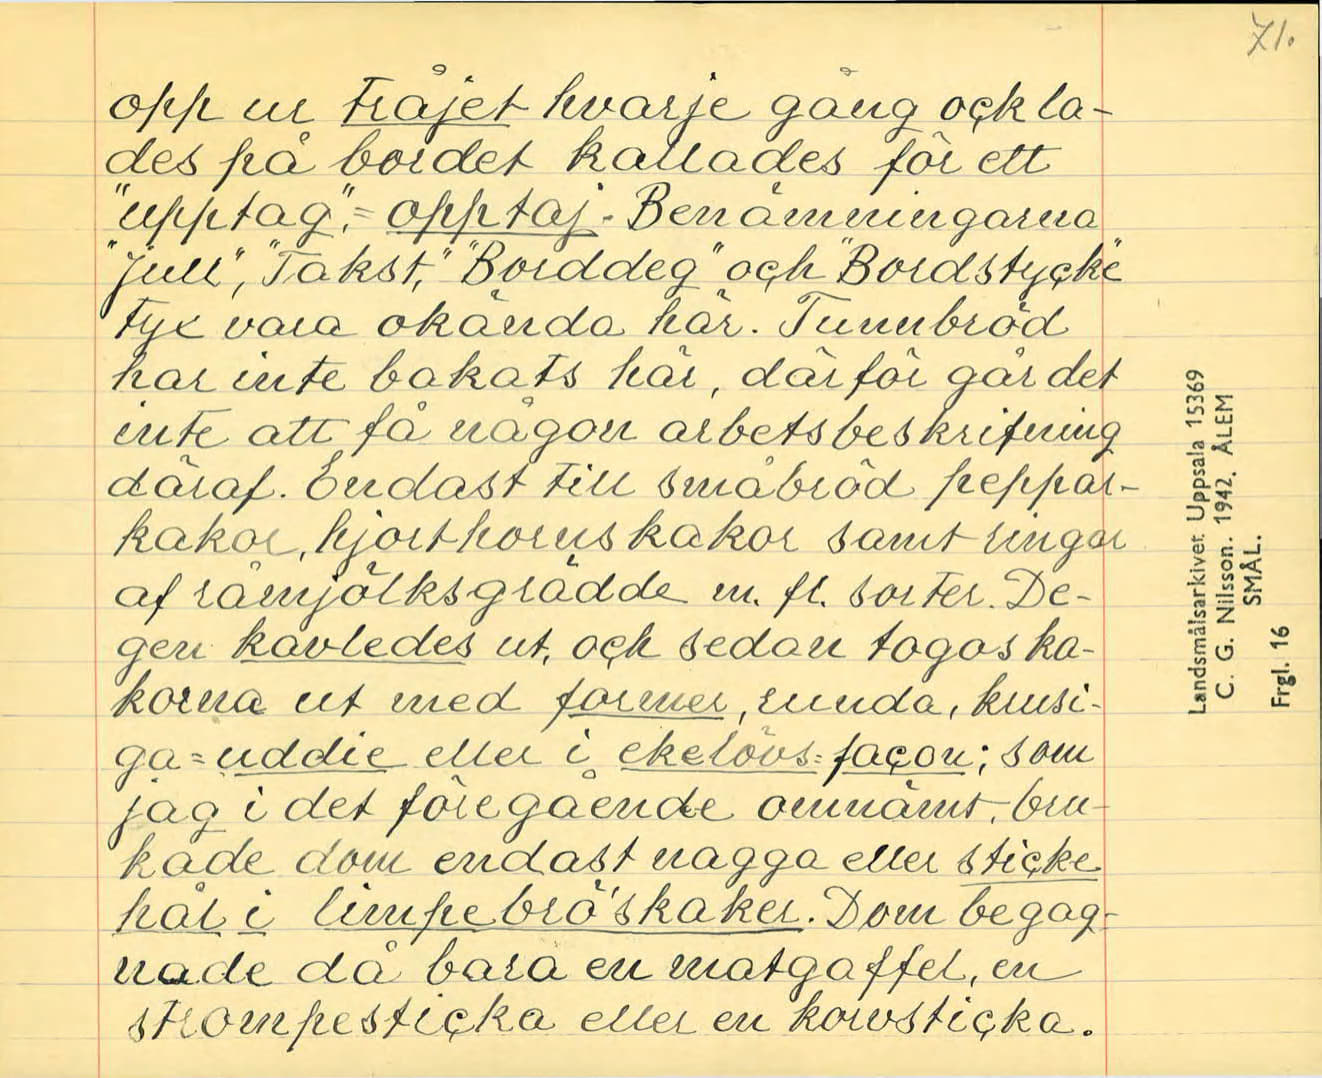 71.
opp ur tråjet hvarje gång oçk la-
des på bordet kallades för ett
"upptag", = opptaj. Benämningarna
"Jull", "Takst," "Borddeg" oçh "Bordstyçke"
tyx vara okända här. Tunnbröd
har inte bakats här, därför går det
inte att få någon arbetsbeskrifning
däraf. Endast till småbröd peppar-
kakor, hjorthornskakor samt ringar
af råmjölksgrädde m. fl. sorter. De-
gen kavledes ut, oçh sedan togos ka-
korna ut med former, runda, krusi-
ga = uddie eller i ekelövs= façon; som
jag i det föregående omnämt, bru-
kade dom endast nagga eller stiçke
hål i limpebrö'skaker. Dom begag-
nade då bara en matgaffel, en
strompestiçka eller en korvstiçka.
Landsmålsarkivet Uppsala 15369
C. G. Nilsson. 1942. ÅLEM
SMÅL.
Frgl. 16